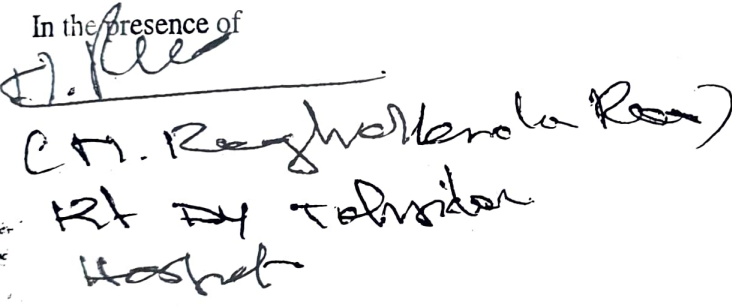 In the presence of
(M. Raghavendra Rao)
Rt Dy Tahsildar
Hospet